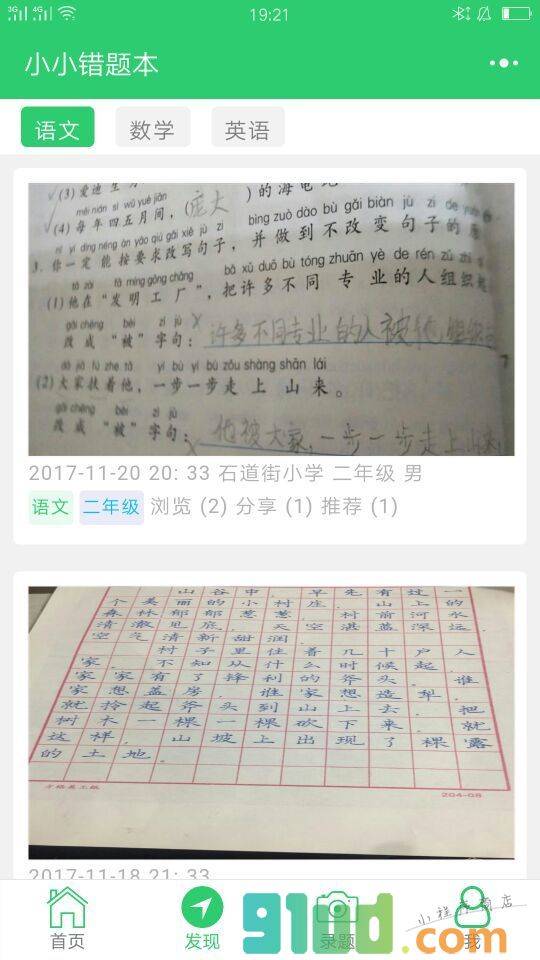 3G 4G 19:21
小小错题本
语文 数学 英语
(3)爱迪生
)的海龟
měi nián sì wǔ yuè jiān
(4)每年四五月间，(庞大
nǐ yí dìng néng àn yāo qiú gǎi xiě jù zi bìng zuò dào bù gǎi biàn jù zi de
3.你一定能按要求改写句子，并做到不改变句子的
tā zài fā míng gōng chǎng bǎ xǔ duō bù tóng zhuān yè de rén zǔ zhī
(1)他在“发明工厂”，把许多不同专业的人组织
gǎi chéng bèi zì jù
改成“被”字句：许多不同专业的人被他组织
dà jiā fú zhe tā yí bù yí bù zǒu shàng shān lái
(2)大家扶着他，一步一步走上山来。
gǎi chéng bèi zì jù
改成“被”字句：他被大家，一步一步走上山来
2017-11-20 20: 33 石道街小学 二年级 男
语文 二年级 浏览 (2) 分享 (1) 推荐 (1)
山谷中，早先有过一
个美丽的小村庄。山上的
森林郁郁葱葱，村前河水
清澈见底，天空湛蓝深远，
空气清新甜润。
村子里住着几十户人
家。不知从什么时候起，
家家有了锋利的斧头。谁
家想盖房，谁家想造犁，
就拎起斧头到山上去，把
树木一棵一棵砍下来。就
这样，山坡上出现了裸露
的土地。
204-08
2017-11-18 21: 33
首页 发现 录题 我
91ud.com
小程序商店